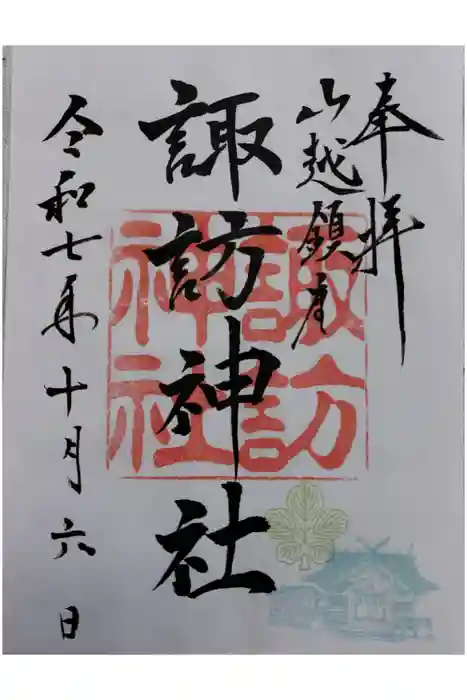 奉拝
山越鎮座
諏訪神社
諏訪
神社
令和七年十月六日